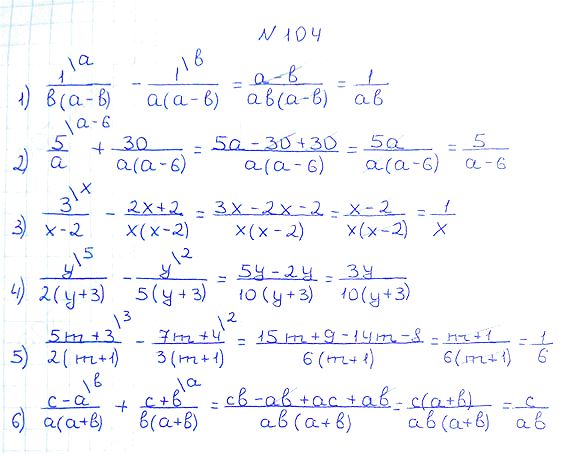 N 104
1) 1\a/b(a-b) - 1\b/a(a-b) = a-b/ab(a-b) = 1/ab
2) 5\a-6/a + 30/a(a-6) = 5a-30+30/a(a-6) = 5a/a(a-6) = 5/a-6
3) 3\x/x-2 - 2x+2/x(x-2) = 3x-2x-2/x(x-2) = x-2/x(x-2) = 1/x
4) y\5/2(y+3) - y\2/5(y+3) = 5y-2y/10(y+3) = 3y/10(y+3)
5) 5m+3\3/2(m+1) - 7m+4\2/3(m+1) = 15m+9-14m-8/6(m+1) = m+1/6(m+1) = 1/6
6) c-a\b/a(a+b) + c+b\a/b(a+b) = cb-ab+ac+ab/ab(a+b) = c(a+b)/ab(a+b) = c/ab